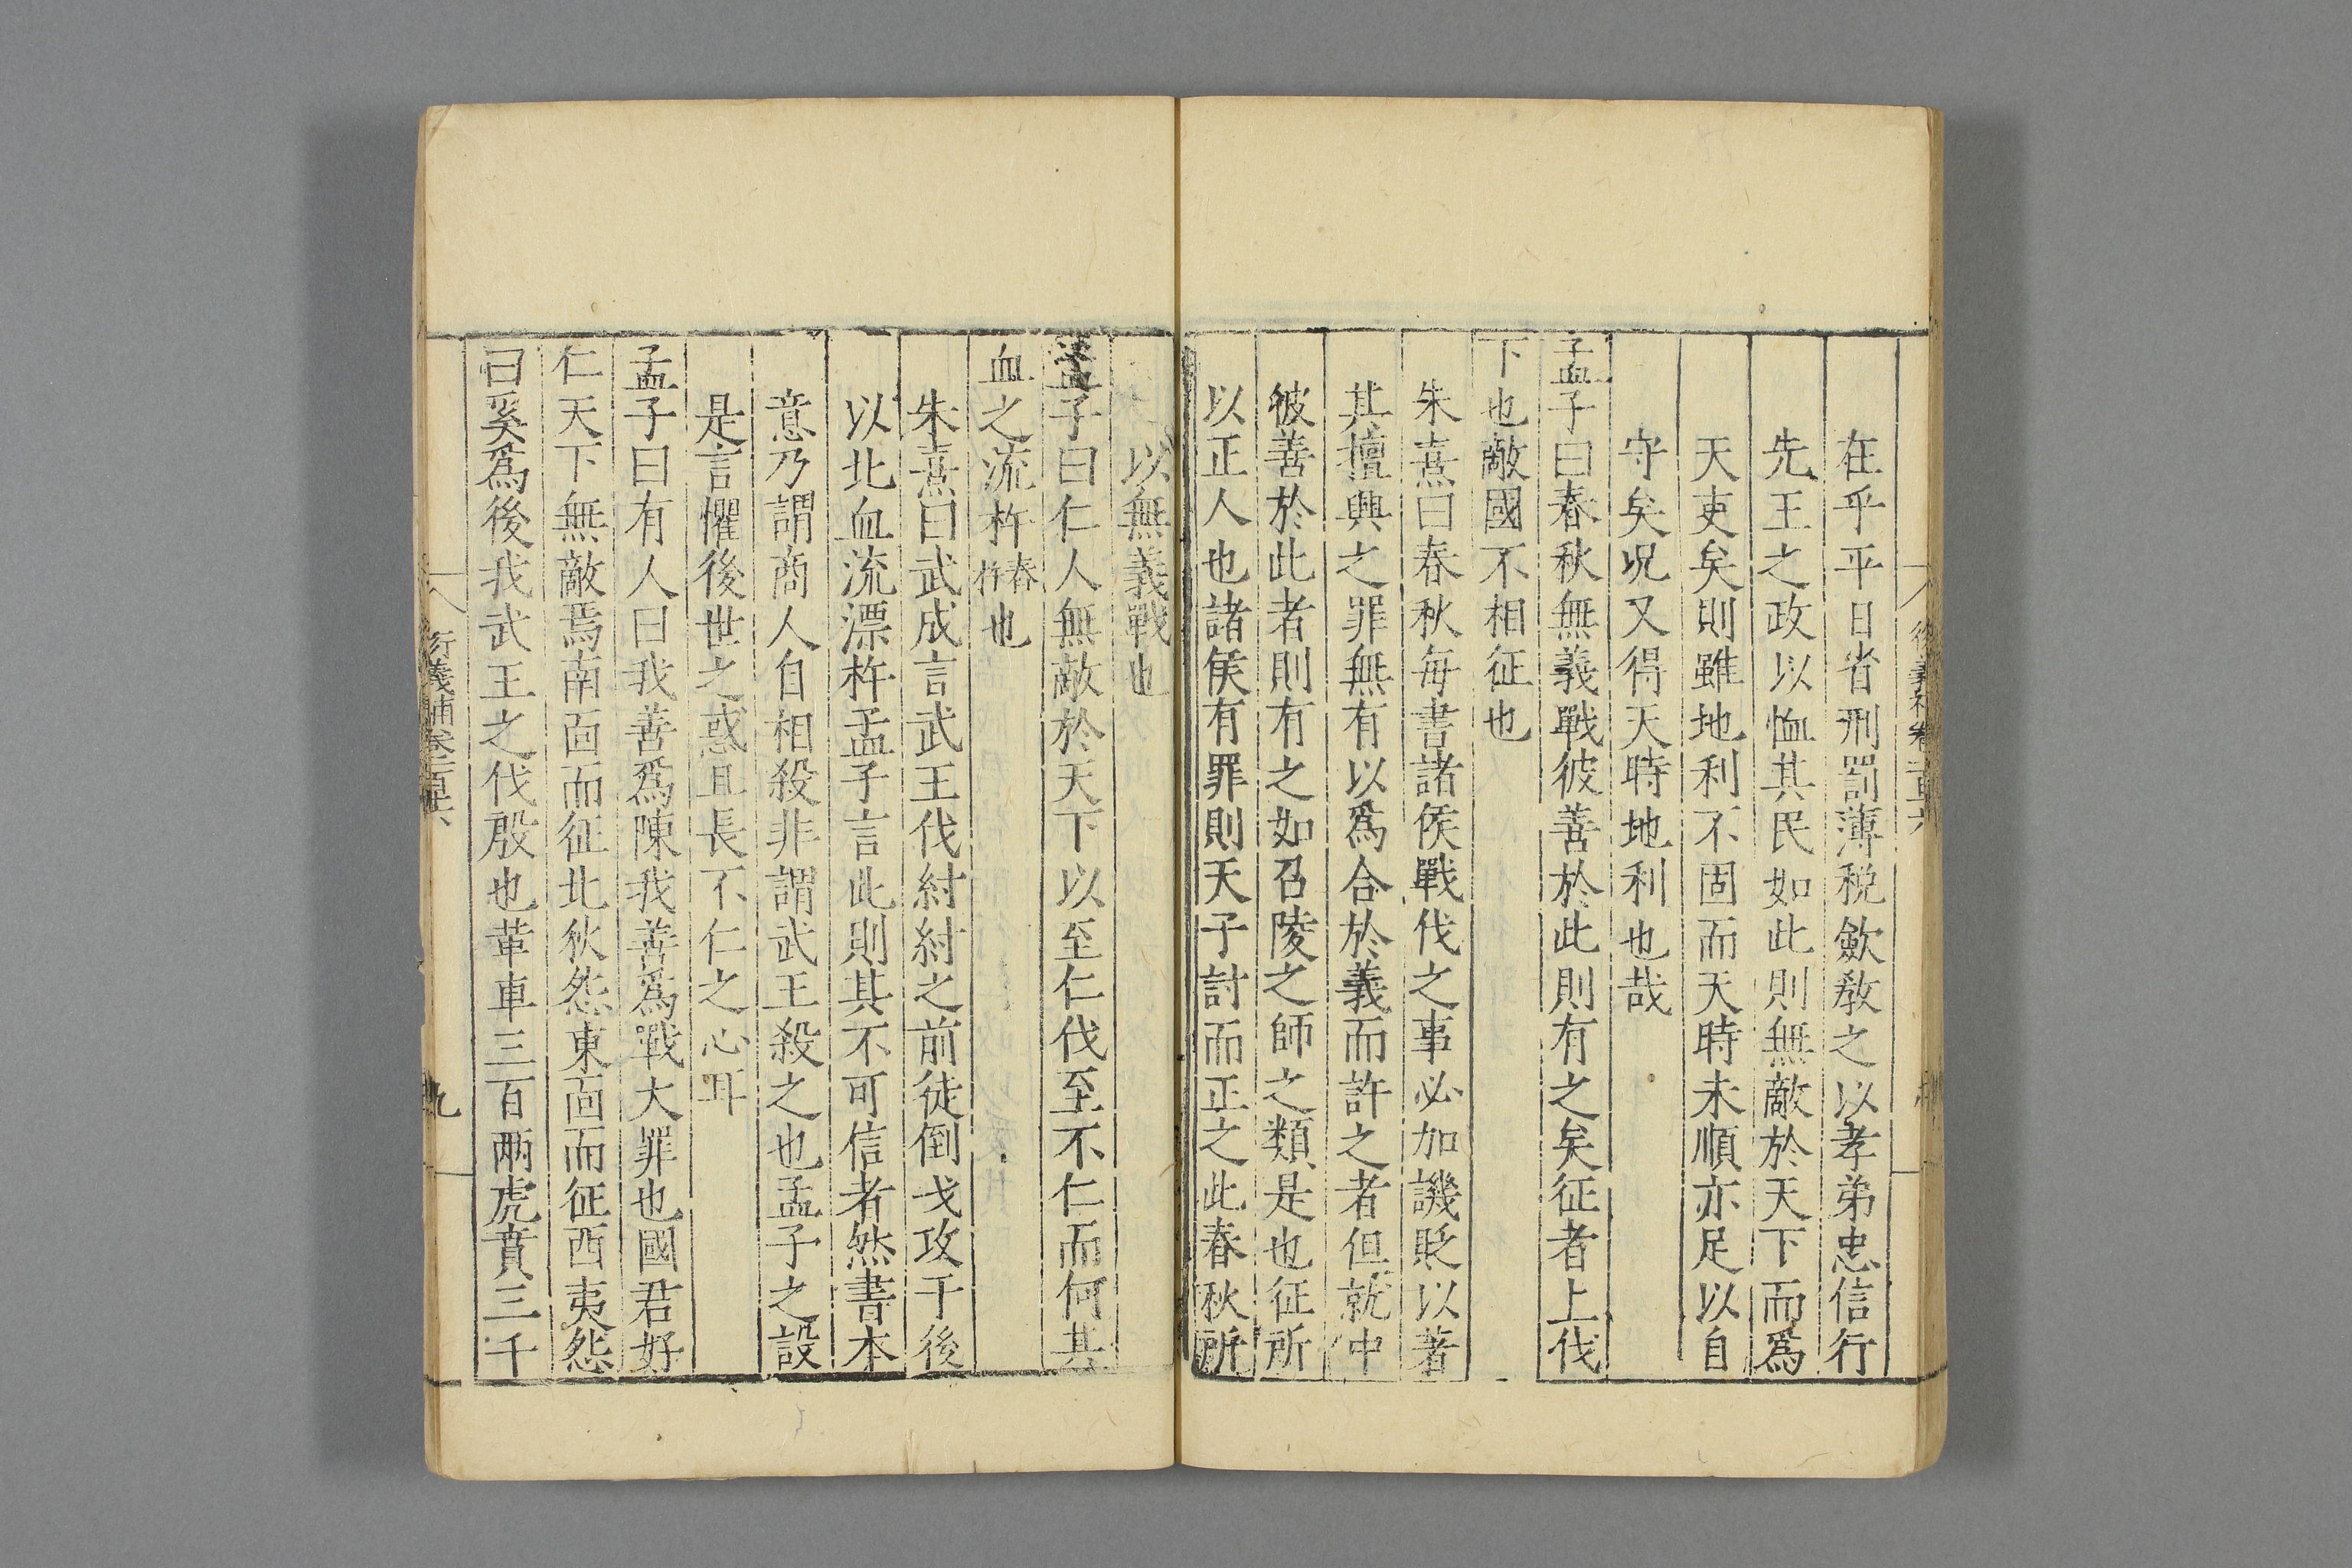 在乎平日省刑罰薄稅歛敎之以孝弟忠信行
先王之政以恤其民如此則無敵於天下而爲
天吏矣則雖地利不固而天時未順亦足以自
守矣况又得天時地利也哉
孟子曰春秋無義戰彼善於此則有之矣征者上伐
下也敵國不相征也
朱熹曰春秋每書諸侯戰伐之事必加譏貶以著
其擅興之罪無有以爲合於義而許之者但就中
彼善於此者則有之如召陵之師之類是也征所
以正人也諸侯有罪則天子討而正之此春秋所
以無義戰也
孟子曰仁人無敵於天下以至仁伐至不仁而何其
血之流杵舂杵也
朱熹曰武成言武王伐紂紂之前徒倒戈攻于後
以北血流漂杵孟子言此則其不可信者然書本
意乃謂商人自相殺非謂武王殺之也孟子之設
是言懼後世之惑且長不仁之心耳
孟子曰有人曰我善爲陳我善爲戰大罪也國君好
仁天下無敵焉南面而征北狄怨東面而征西夷怨
曰奚爲後我武王之伐殷也革車三百兩虎賁三千
衍義補卷一百六
九